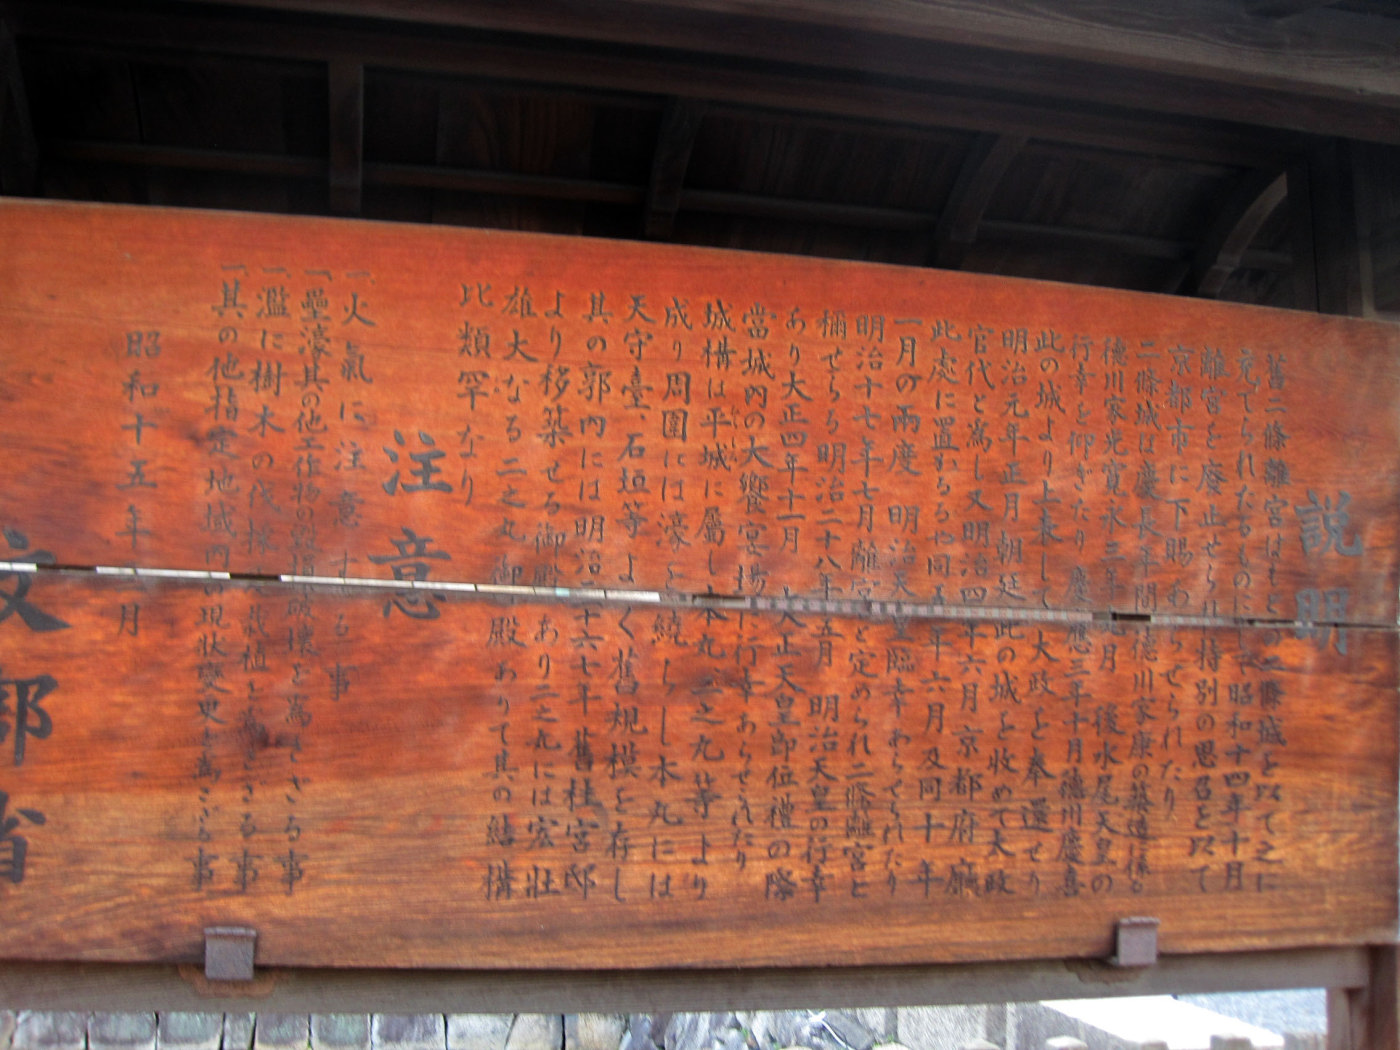 説明
舊二條離宮はもとの二條城を以て之に
充てられたるものにして昭和十四年十月
離宮を廢止せられ特別の思召を以て
京都市に下賜あらせられたり
二條城は慶長年間德川家康の築造に係る
德川家光寛永三年九月後水尾天皇の
行幸を仰ぎたり慶應三年十月德川慶喜
此の城より上表して大政を奉還せり
明治元年正月朝廷此の城を收めて太政
官代と爲し又明治四年六月京都府廳
此處に置かるゝや同五年六月及同十年
一月の兩度明治天皇臨幸あらせられたり
明治十七年七月離宮と定められ二條離宮と
稱せらる明治二十八年五月明治天皇の行幸
あり大正四年十一月大正天皇卽位禮の際
當城内の大饗宴場に行幸あらせられたり
城構は平城に屬し本丸二之丸等より
成り周圍には濠を繞らし本丸には
天守臺、石垣等よく舊規模を存し
其の郭内には明治二十六七年舊桂宮邸
より移築せる御殿あり二之丸には宏壯
雄大なる二之丸御殿ありて其の結構
比類罕なり
注意
一火氣に注意すべる事
一壘濠其の他工作物の毀損破壊を爲さざる事
一濫に樹木の伐採及栽植を爲さざる事
一其の他指定地域内の現狀變更を爲さざる事
昭和十五年 月
文部省